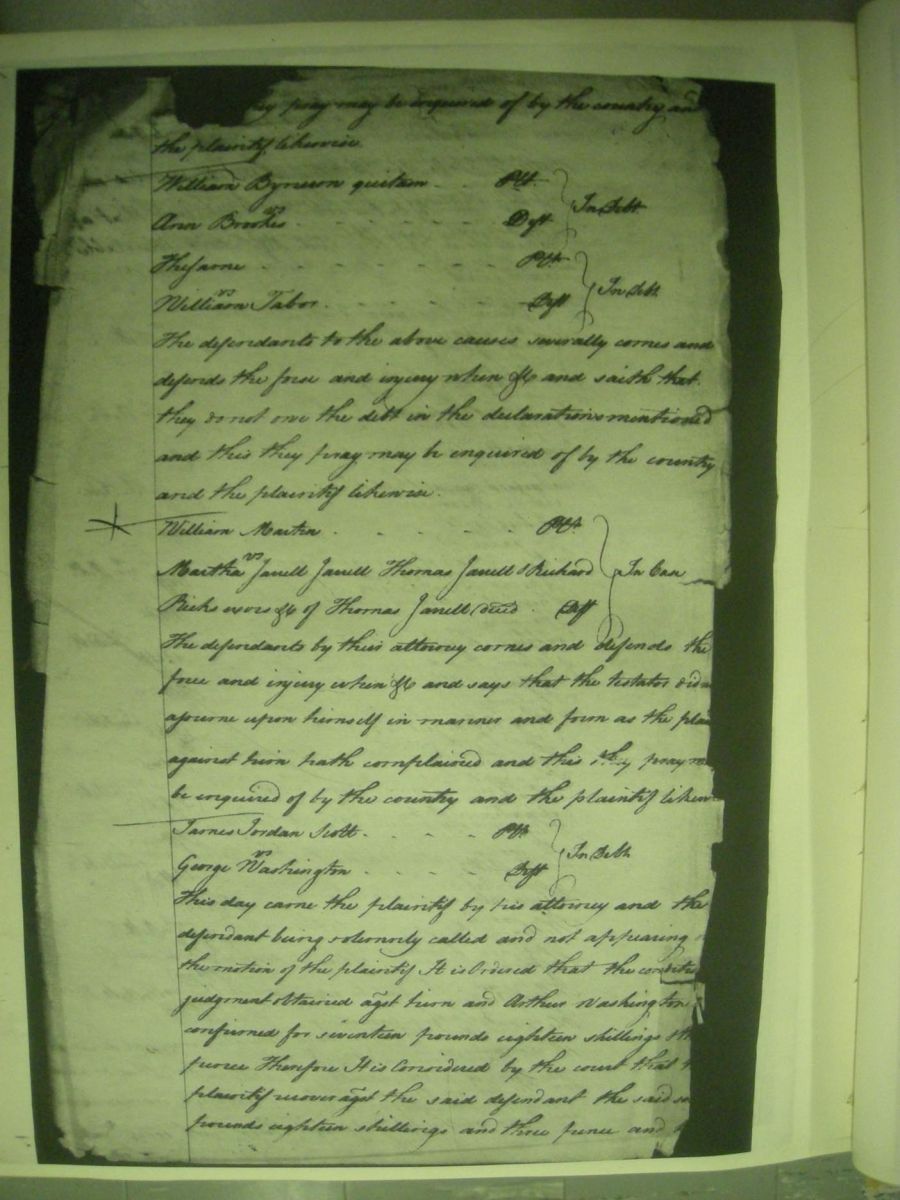 they pray may be enquired of by the country and
the plaintif likewise
William Bynum quitam . . Plt. } In Debt
vs
Ann Brookes . . . . . . . Deft
The same . . . . . . . Plt. } In Debt
vs
William Tabor . . . . . . Deft
The defendants to the above causes severally comes and
defends the force and injury when &c and saith that
they do not owe the debt in the declarations mentioned
and this they pray may be enquired of by the country
and the plaintif likewise.
William Martin . . . . . . Plt. } In Case
vs
Martha Janell Janell Thomas Janell & Richard
Ricks exors &c of Thomas Janell decd . Deft
The defendants by their attorney comes and defends the
force and injury when &c and says that the testator did n
assume upon himself in manner and form as the plai
against him hath complained and this they pray m
be enquired of by the country and the plaintif likew
James Jordan Scott . . . . Plt. } In Debt
vs
George Washington . . . . . Deft
This day came the plaintif by his attorney and the
defendant being solemnly called and not appearing
the motion of the plaintif It is Ordered that the conditi
judgment obtained agst him and Arthur Washington
confirmed for seventeen pounds eighteen shillings th
pence Therefore It is Considered by the court that t
plaintif recover agst the said defendant the said se
pounds eighteen shillings and three pence and